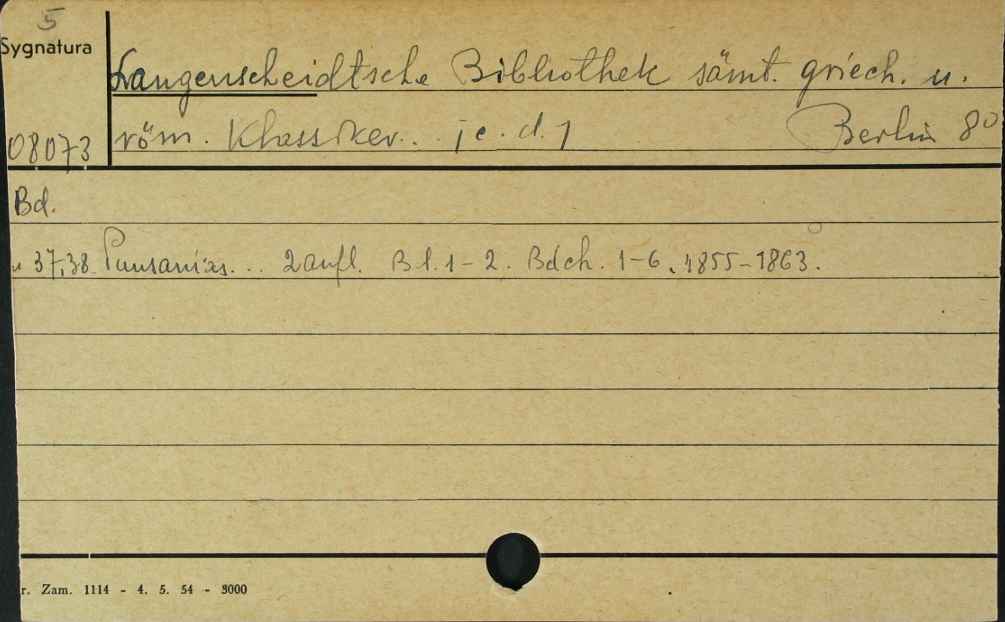 5
Sygnatura
Langenscheidtsche Bibliothek sämt. griech. u.
08073 röm. Klassiker.. [c. d.] Berlin 8°
Bd.
37,38. Pausanias... 2 aufl. Bd. 1-2. Bdch. 1-6. 1855-1863.
r. Zam. 1114 - 4. 5. 54 - 3000